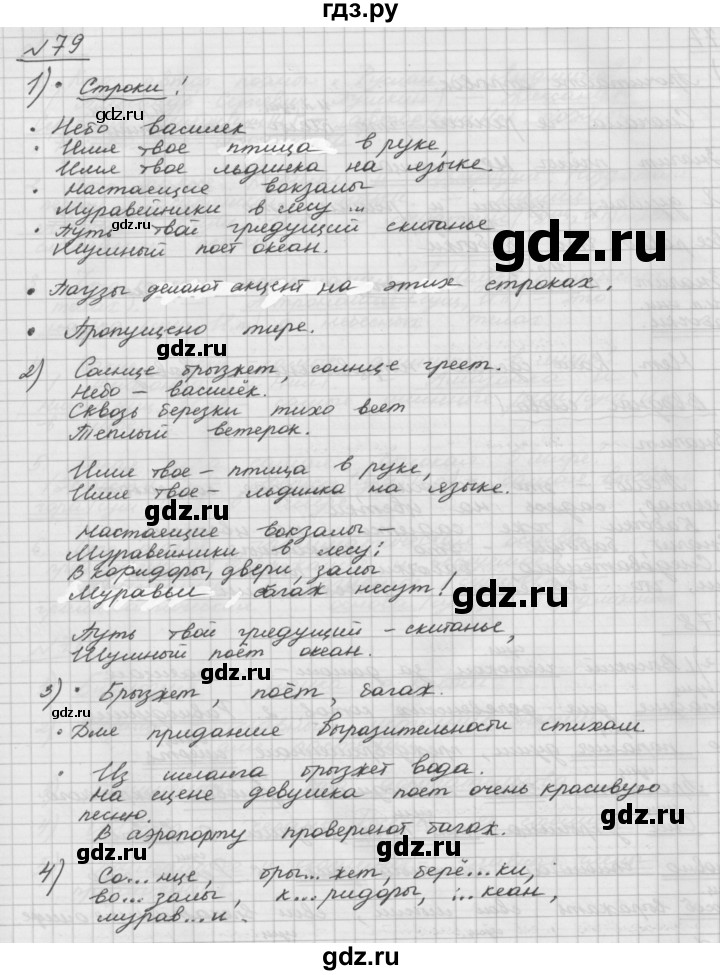 гдз.ру
№79
1) • Строки!
gdz.ru
• Небо василек
• Имя твое птица в руке,
Имя твое льдинка на языке.
• Настоящие вокзалы
Муравейники в лесу...
• Путь твой грядущий скитанье
Шумный поет океан.
gdz.ru
• Паузы делают акцент на этих строках.
• Пропущено тире.
gdz.ru
2) Солнце брызжет, солнце греет.
Небо – василёк.
Сквозь березки тихо веет
Теплый ветерок.
Имя твое – птица в руке,
Имя твое – льдинка на языке.
gdz.ru
Настоящие вокзалы –
Муравейники в лесу;
В коридоры, двери, залы
Муравьи багаж несут!
gdz.ru
Путь твой грядущий – скитанье,
Шумный поёт океан.
gdz.ru
3) • Брызжет, поёт, багаж.
• Для придания выразительности стихам
• Из шланга брызжет вода.
На сцене девушка поет очень красивую
песню.
gdz.ru
В аэропорту проверяют багаж.
gdz.ru
4) Со...нце, бры...жет, берё...ки,
во...залы, к...ридоры, ...кеан,
мурав...и.
gdz.ru
gdz.ru